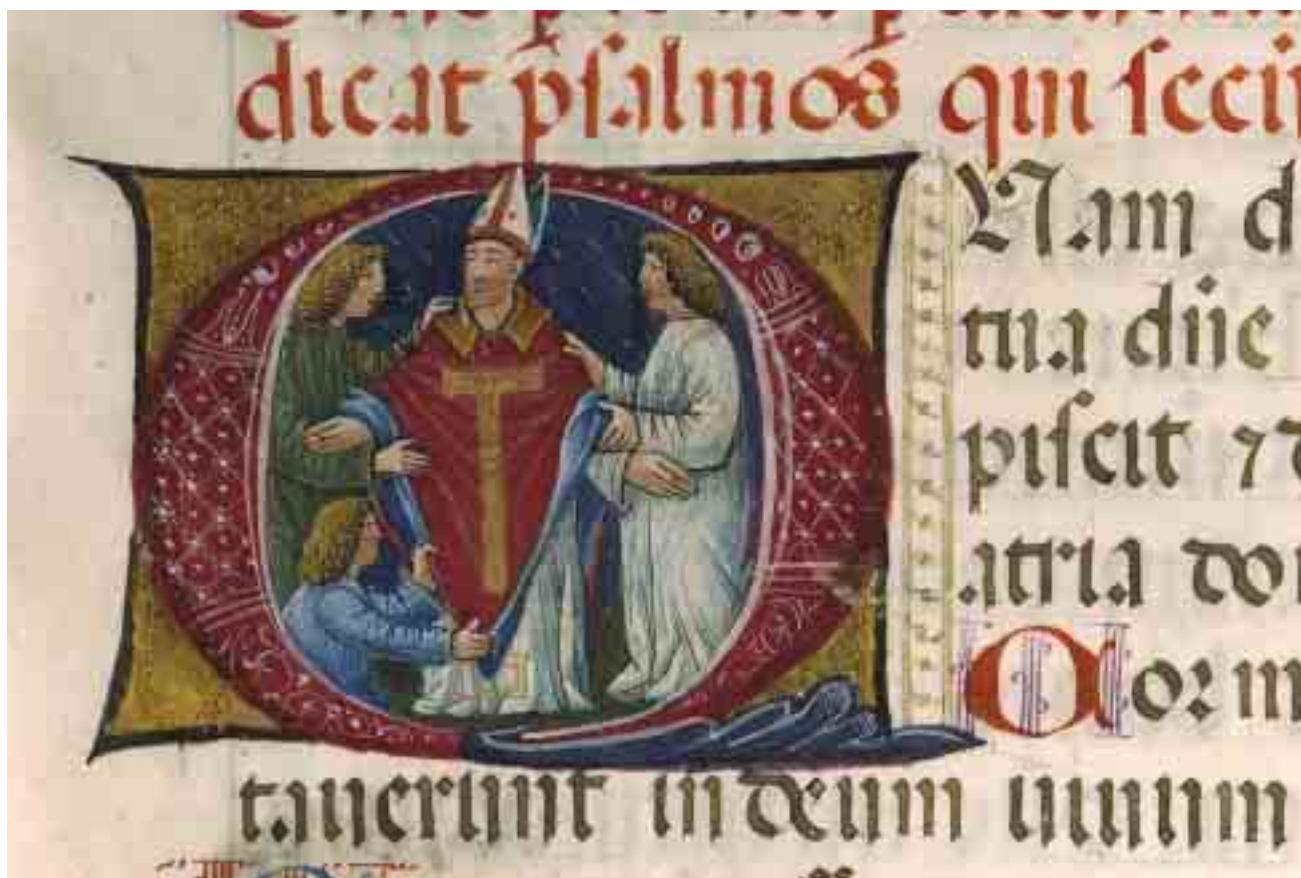 dicat pſalmos qui
QUam
tua dn̄e
piſcit ⁊
atria
Cor
tauerunt in deum uiuum